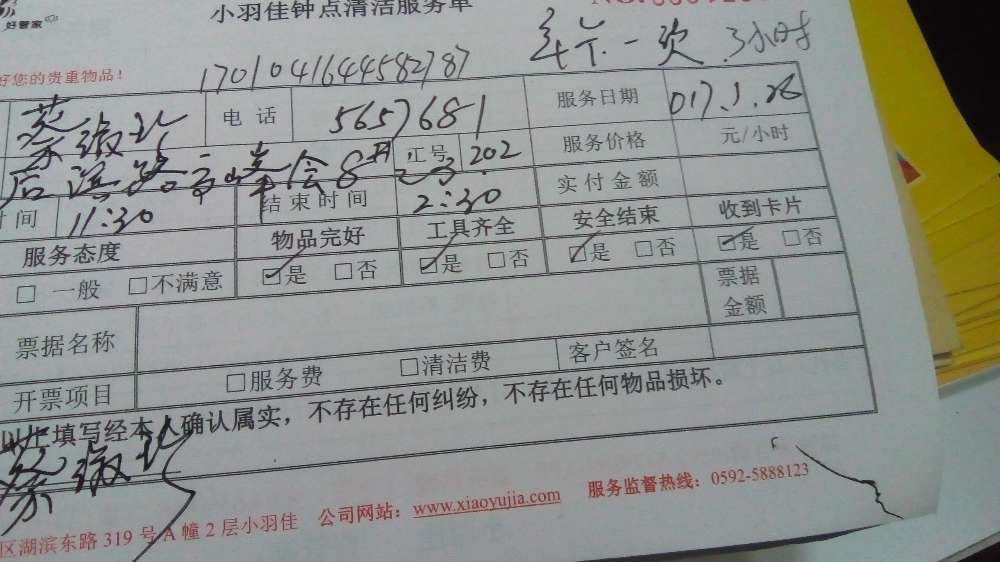 好管家 小羽佳钟点清洁服务单
年一次 3小时
好您的贵重物品！ 1701041644582787
蔡 电话 5657681 服务日期 017.1.26
后滨路 8 202 服务价格 元/小时
时间 11:30 结束时间 2:30 实付金额
服务态度 物品完好 工具齐全 安全结束 收到卡片
□ 一般 □不满意 ☑是 □否 ☑是 □否 ☑是 □否 ☑是 □否
票据名称 票据金额
开票项目 □服务费 □清洁费 客户签名
以上填写经本人确认属实，不存在任何纠纷，不存在任何物品损坏。
蔡
区湖滨东路 319 号 A 幢 2 层小羽佳 公司网站：www.xiaoyujia.com 服务监督热线：0592-5888123